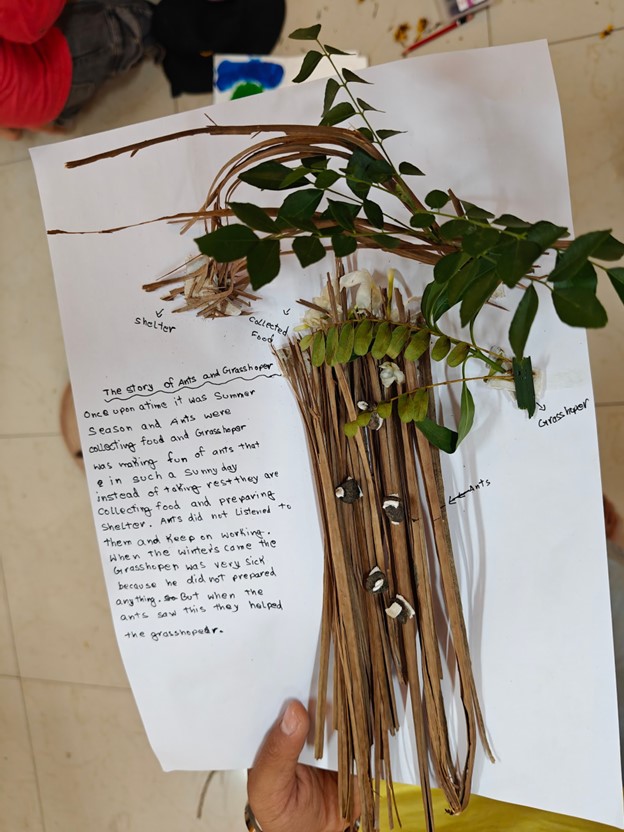 Shelter
Collected
Food
The story of Ants and Grasshoper
Once upon atime it was Summer
Season and Ants were
collecting food and Grasshoper
was making fun of ants that
in such a sunnyday
instead of taking rest they are
collecting food and preparing
shelter. Ants did not listened to
them and keep on working.
When the winters came the
Grasshoper was very sick
because he did not prepared
anything. But when the
ants saw this they helped
the grasshoper.
Grasshoper
Ants